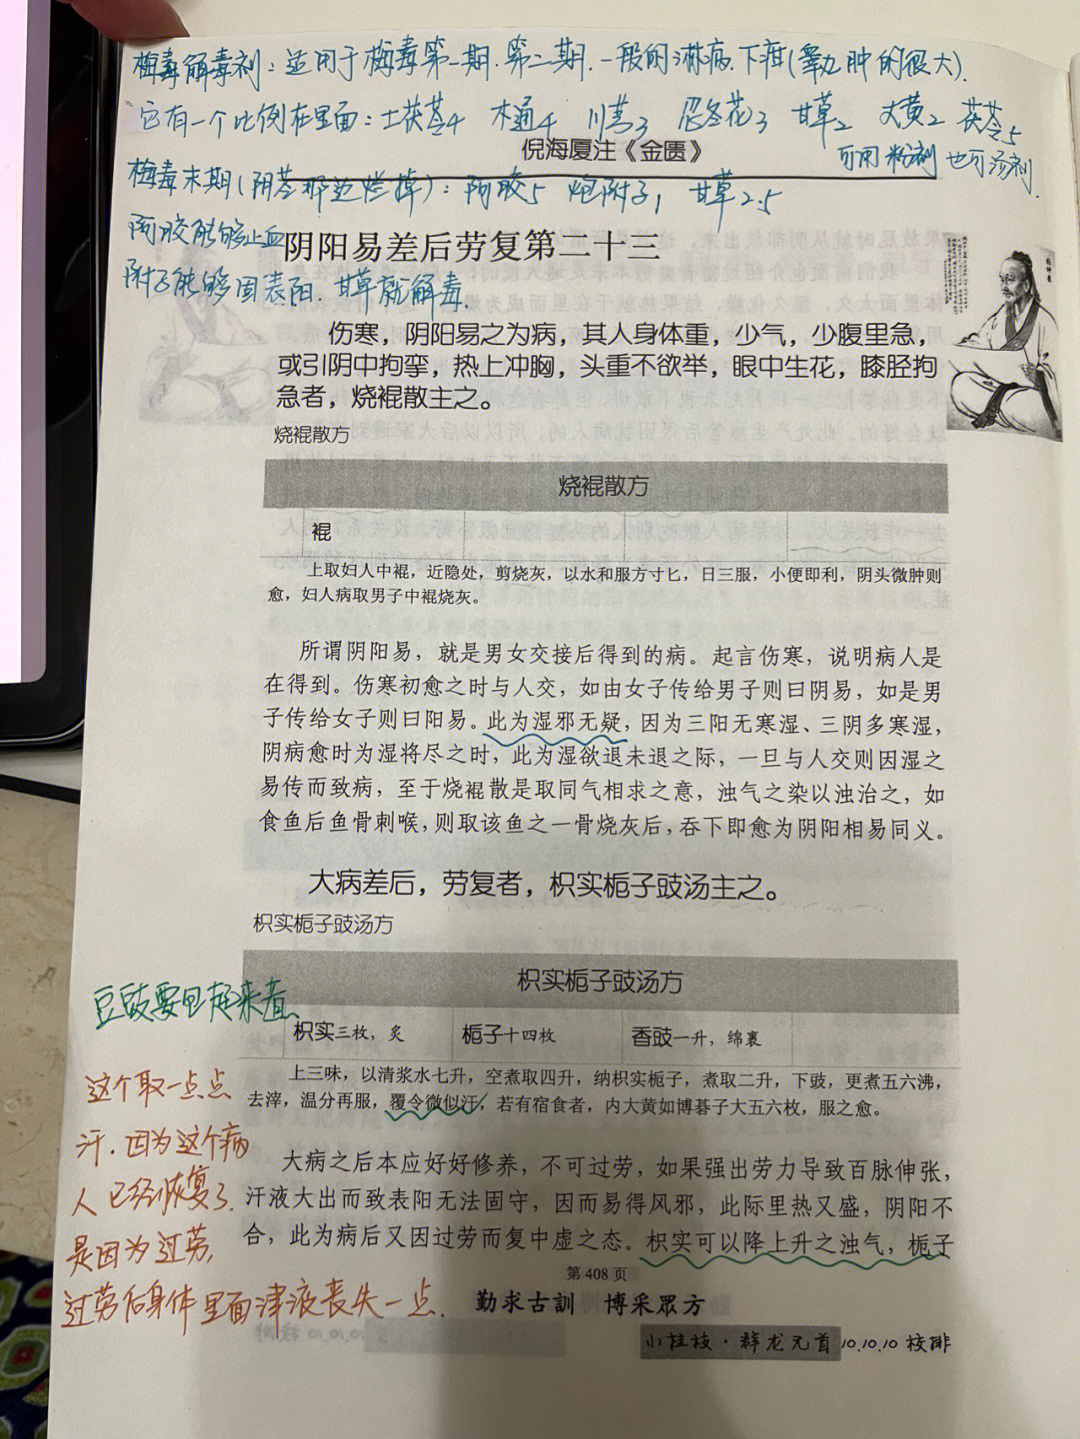 梅毒解毒剂：适用于梅毒第一期.第二期.一般的淋病.下疳(睾丸肿的很大).
它有一个比例在里面：土茯苓4 木通4 川芎3 忍冬花3 甘草2 大黄2 茯苓5
可用粉剂 也可汤剂.
倪海厦注《金匮》
梅毒末期(阴茎那边烂掉)：阿胶5 炮附子1 甘草2.5
阿胶能够止血
附子能够固表阳.甘草就解毒.
阴阳易差后劳复第二十三
伤寒，阴阳易之为病，其人身体重，少气，少腹里急，
或引阴中拘挛，热上冲胸，头重不欲举，眼中生花，膝胫拘
急者，烧裩散主之。
烧裩散方
烧裩散方
裩
上取妇人中裩，近隐处，剪烧灰，以水和服方寸匕，日三服，小便即利，阴头微肿则
愈，妇人病取男子中裩烧灰。
所谓阴阳易，就是男女交接后得到的病。起言伤寒，说明病人是
在得到。伤寒初愈之时与人交，如由女子传给男子则曰阴易，如是男
子传给女子则曰阳易。此为湿邪无疑，因为三阳无寒湿、三阴多寒湿，
阴病愈时为湿将尽之时，此为湿欲退未退之际，一旦与人交则因湿之
易传而致病，至于烧裩散是取同气相求之意，浊气之染以浊治之，如
食鱼后鱼骨刺喉，则取该鱼之一骨烧灰后，吞下即愈为阴阳相易同义。
大病差后，劳复者，枳实栀子豉汤主之。
枳实栀子豉汤方
枳实栀子豉汤方
豆豉要包起来煮、
枳实三枚，炙 栀子十四枚 香豉一升，绵裹
上三味，以清浆水七升，空煮取四升，纳枳实栀子，煮取二升，下豉，更煮五六沸，
去滓，温分再服，覆令微似汗，若有宿食者，内大黄如博碁子大五六枚，服之愈。
这个取一点点
汗.因为这个病
人已经恢复了.
是因为过劳,
过劳后身体里面津液丧失一点.
大病之后本应好好修养，不可过劳，如果强出劳力导致百脉伸张，
汗液大出而致表阳无法固守，因而易得风邪，此际里热又盛，阴阳不
合，此为病后又因过劳而复中虚之态。枳实可以降上升之浊气，栀子
第 408 页
勤求古訓 博采眾方
小桂枝·群龙元首 10.10.10 校排